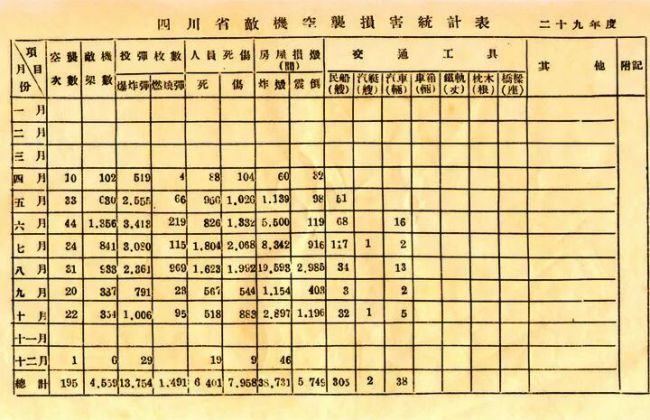 四川省敵機空襲損害統計表 二十九年度
項目 月份 空襲次數 敵機架數 投彈枚數 人員死傷 房屋損燬(間) 交通工具 其他 附記
爆炸彈 燃燒彈 死 傷 炸燬 震倒 民船(艘) 汽艇(艘) 汽車(輛) 車箱(輛) 鐵軌(丈) 枕木(根) 橋樑(座)
一月
二月
三月
四月 10 102 519 4 88 104 60 32
五月 33 630 2,555 66 956 1,026 1,139 98 51
六月 44 1,356 3,413 219 826 1,332 5,500 119 68 16
七月 34 841 3,080 115 1,804 2,068 8,342 916 117 1 2
八月 31 933 2,361 969 1,623 1,992 19,593 2,985 34 13
九月 20 337 791 23 567 544 1,154 403 3 2
十月 22 354 1,006 95 518 883 2,897 1,196 32 1 5
十一月
十二月 1 6 29 19 9 46
總計 195 4,559 13,754 1,491 6 401 7,958 38,731 5 749 305 2 38